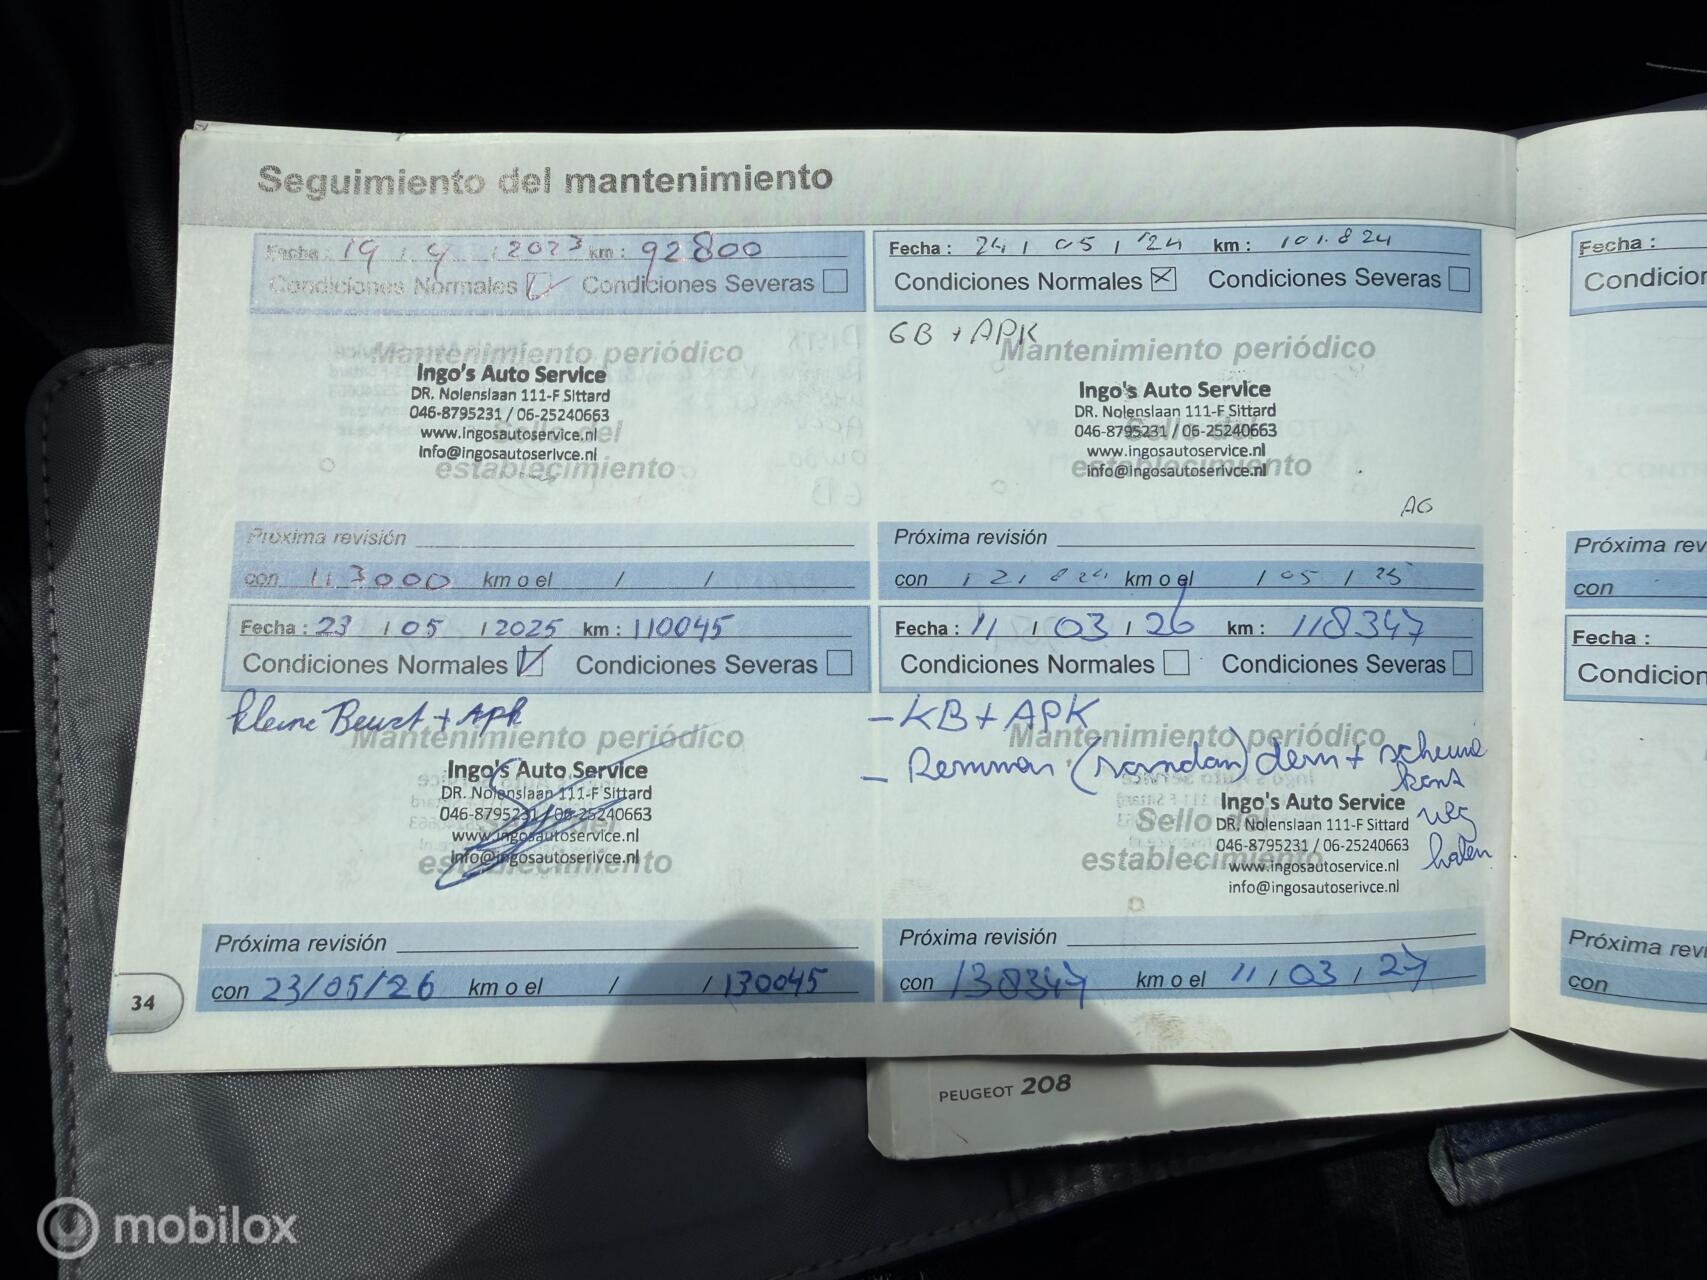 Seguimiento del mantenimiento
Fecha : 19 / 4 / 2023 km : 92800
Condiciones Normales Condiciones Severas
Mantenimiento periódico
Ingo's Auto Service
DR. Nolenslaan 111-F Sittard
046-8795231 / 06-25240663
www.ingosautoservice.nl
Sello del
info@ingosautoserivce.nl
establecimiento
Próxima revisión
con 113000 km o el / /
Fecha : 24 / 05 / '24 km : 101.824
Condiciones Normales Condiciones Severas
GB + APK
Mantenimiento periódico
Ingo's Auto Service
DR. Nolenslaan 111-F Sittard
046-8795231 / 06-25240663
Sello del
www.ingosautoservice.nl
info@ingosautoserivce.nl
establecimiento
AG
Próxima revisión
con 121824 km o el / 05 / 25
Fecha : 23 / 05 / 2025 km : 110045
Condiciones Normales Condiciones Severas
kleine Beurt + Apk
Mantenimiento periódico
Ingo's Auto Service
DR. Nolenslaan 111-F Sittard
046-8795231 / 06-25240663
Sello del
www.ingosautoservice.nl
info@ingosautoserivce.nl
establecimiento
Próxima revisión
con 23/05/26 km o el / / 130045
Fecha : 11 / 03 / 26 km : 118347
Condiciones Normales Condiciones Severas
- KB + APK
Mantenimiento periódico
- Remmen (rondom) dem +
Ingo's Auto Service
Sello del
DR. Nolenslaan 111-F Sittard
weg
046-8795231 / 06-25240663
halen
establecimiento
www.ingosautoservice.nl
info@ingosautoserivce.nl
Próxima revisión
con 138347 km o el 11 / 03 / 27
34
Fecha :
Condicion
Próxima rev
con
Fecha :
Condicion
Próxima revi
con
PEUGEOT 208
mobilox